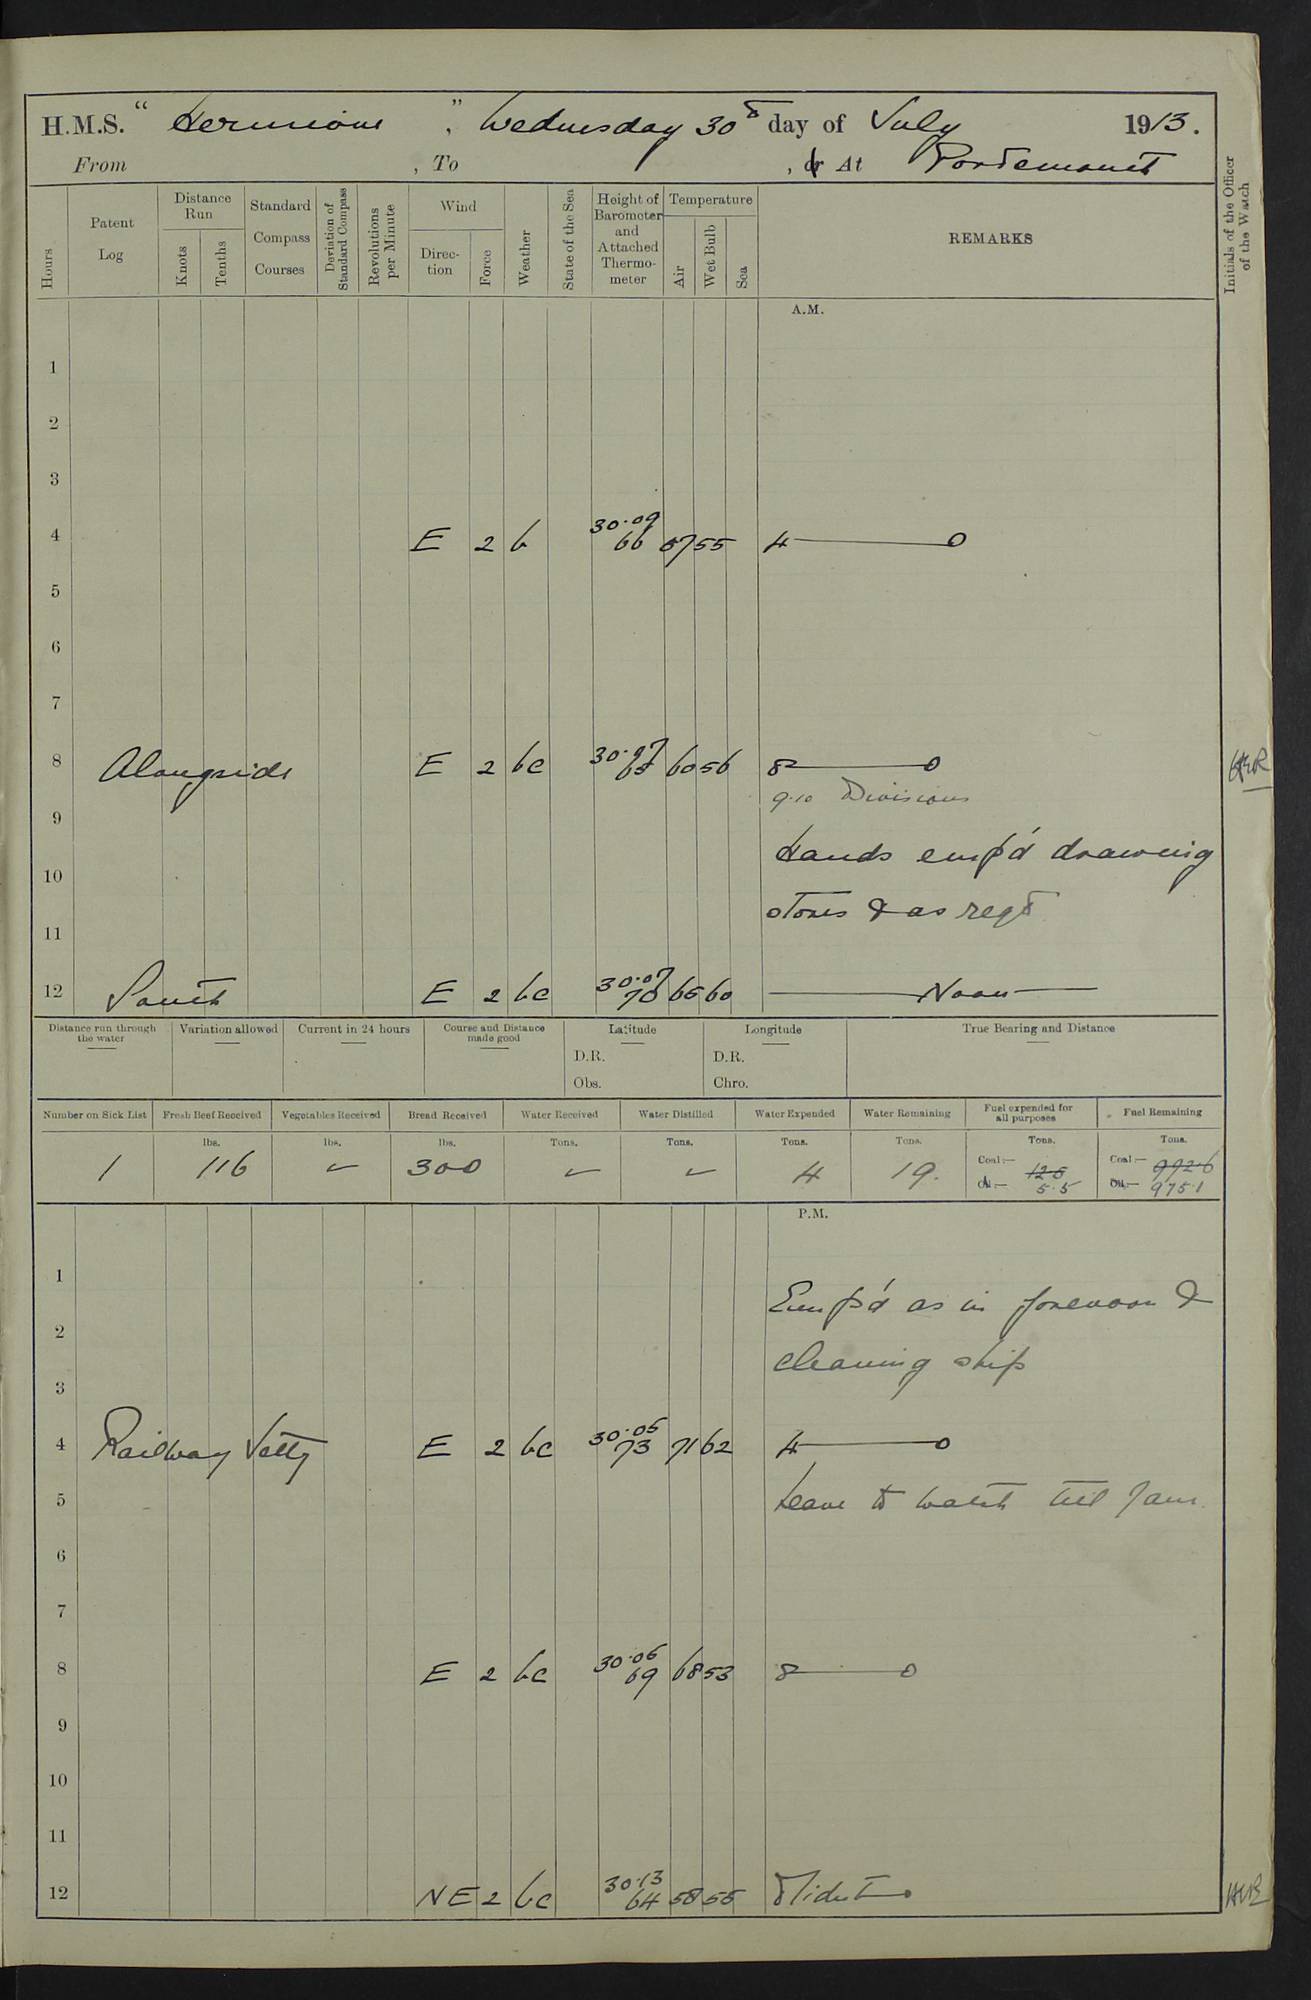 H.M.S. “ Hermione ”, Wednesday 30th day of July 1913.
From , To , or At Portsmouth
Hours
Patent Log
Distance Run
Knots
Tenths
Standard Compass Courses
Deviation of Standard Compass
Revolutions per Minute
Wind
Direc-tion
Force
Weather
State of the Sea
Height of Barometer and Attached Thermo-meter
Temperature
Air
Wet Bulb
Sea
REMARKS
Initials of the Officer of the Watch
A.M.
1
2
3
30.09
4 E 2 b 66 57 55 4
5
6
7
30.07
8 Alongside E 2 bc 65 60 56 8
9.10 Divisions
9
Hands emp'd drawing
10
stores & as reqd
11
30.07
12 South E 2 bc 70 65 60 Noon
Distance run through the water
Variation allowed
Current in 24 hours
Course and Distance made good
Latitude
D.R.
Obs.
Longitude
D.R.
Chro.
True Bearing and Distance
Number on Sick List
Fresh Beef Received
Vegetables Received
Bread Received
Water Received
Water Distilled
Water Expended
Water Remaining
Fuel expended for all purposes
Fuel Remaining
lbs. lbs. lbs. Tons. Tons. Tons. Tons. Tons. Tons.
1 116 ✓ 300 ✓ ✓ 4 19.
Coal:— 12.5 Coal:— 992.6
Oil:— 5.5 Oil:— 975.1
P.M.
1
Emp'd as in forenoon &
2
cleaning ship
3
30.05
4 Railway Jetty E 2 bc 73 71 62 4
Leave to watch till 7am.
5
6
7
30.06
8 E 2 bc 69 68 53 8
9
10
11
30.13
12 NE 2 bc 64 58 55 Midnt